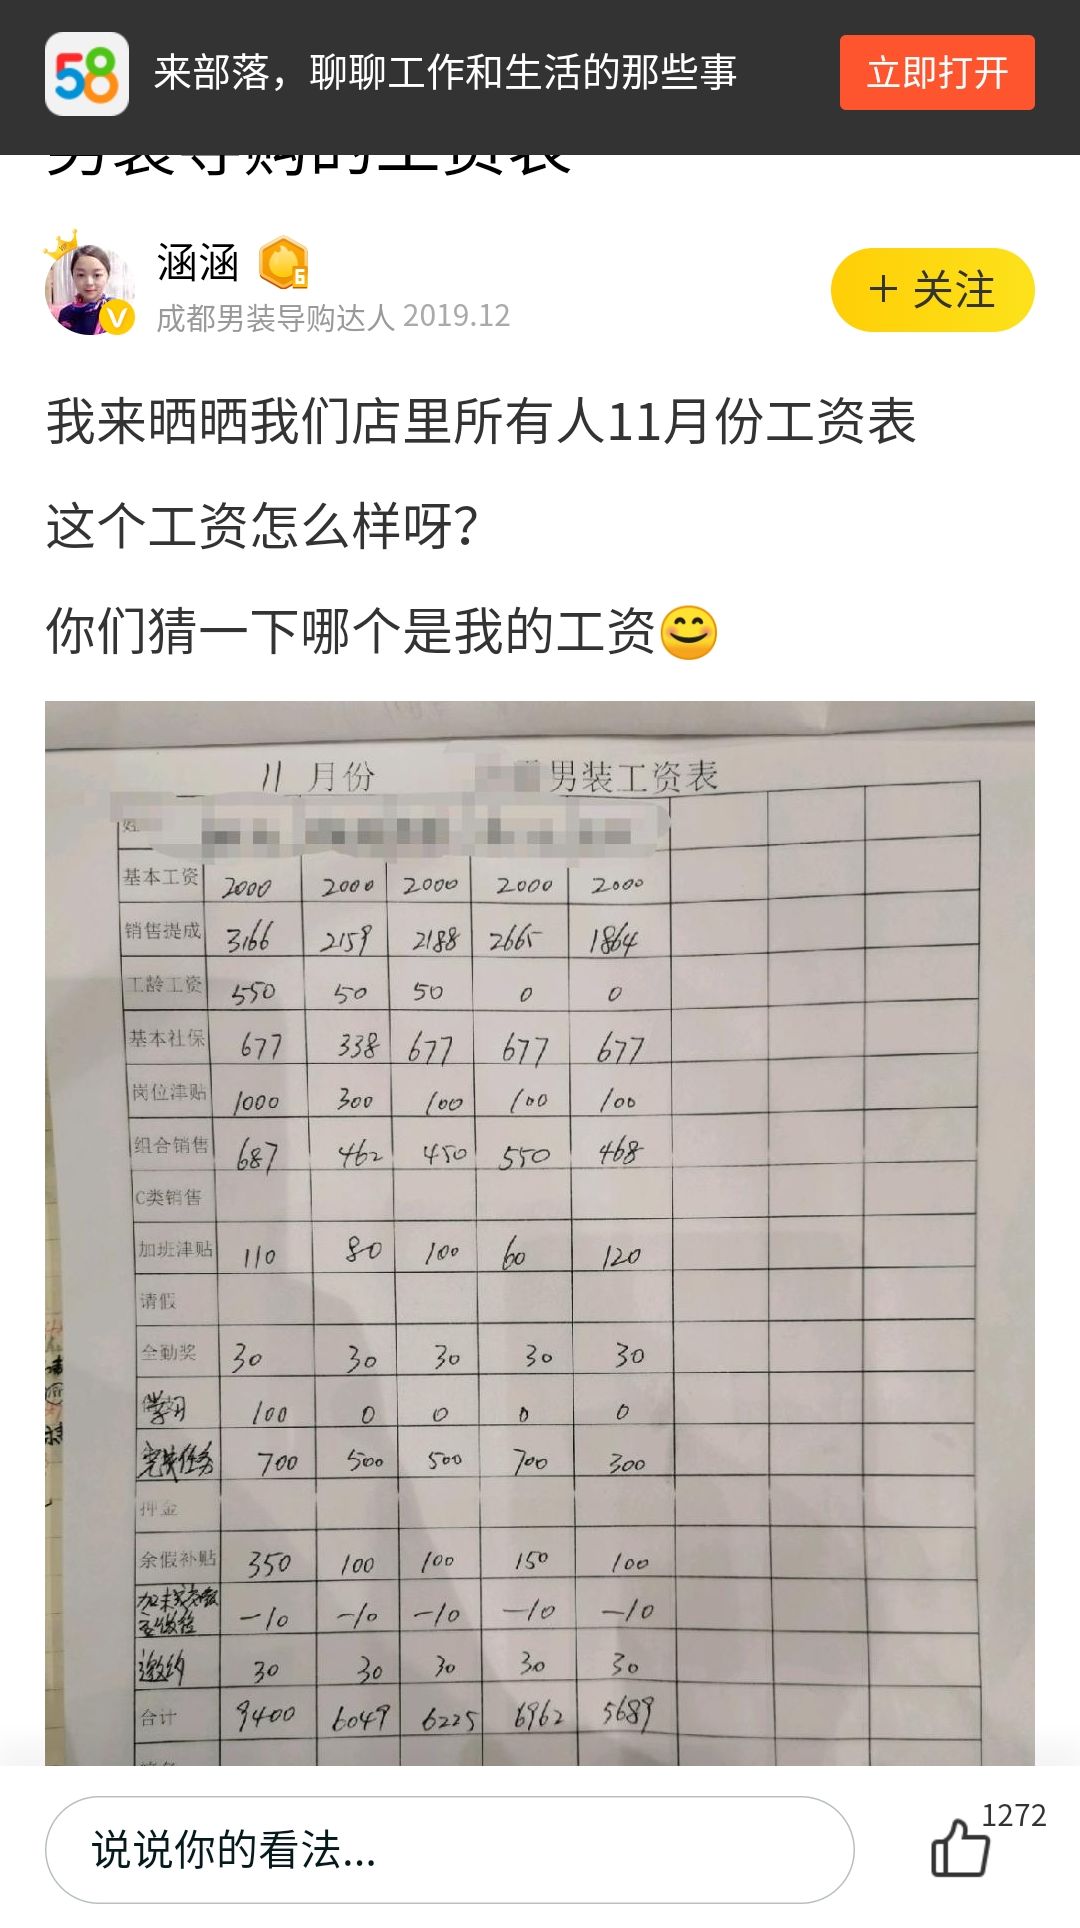 58
来部落，聊聊工作和生活的那些事
立即打开
男装导购的工资表
涵涵
6
成都男装导购达人 2019.12
V
+ 关注
我来晒晒我们店里所有人11月份工资表
这个工资怎么样呀?
你们猜一下哪个是我的工资😊
11 月份 男装工资表
姓
基本工资 2000 2000 2000 2000 2000
销售提成 3166 2159 2188 2665 1864
工龄工资 550 50 50 0 0
基本社保 677 338 677 677 677
岗位津贴 1000 300 100 100 100
组合销售 687 462 450 550 468
C类销售
加班津贴 110 80 100 60 120
请假
全勤奖 30 30 30 30 30
学习 100 0 0 0 0
完成任务 700 500 500 700 300
押金
余假补贴 350 100 100 150 100
-10 -10 -10 -10 -10
邀约 30 30 30 30 30
合计 9400 6049 6225 6962 5689
说说你的看法...
1272